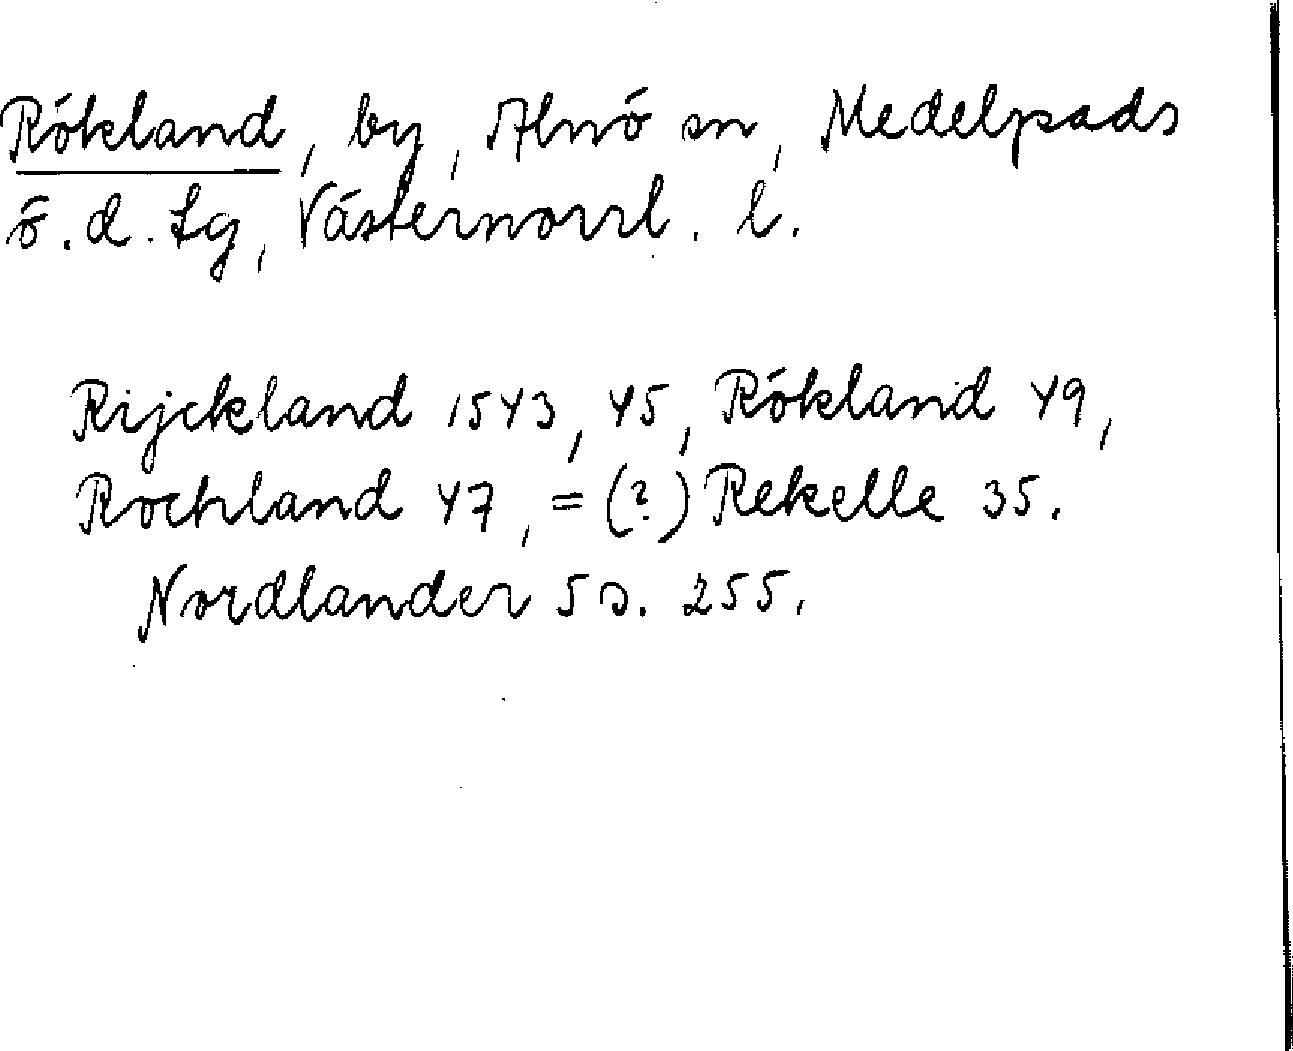 Rökland, by, Alnö sn, Medelpads
ö. d. tg, Västernorrl. l.
Rijckland 1543, 45, Rökland 49,
Rochland 47, = (?) Rekelle 35.
Nordlander 5 s. 255.